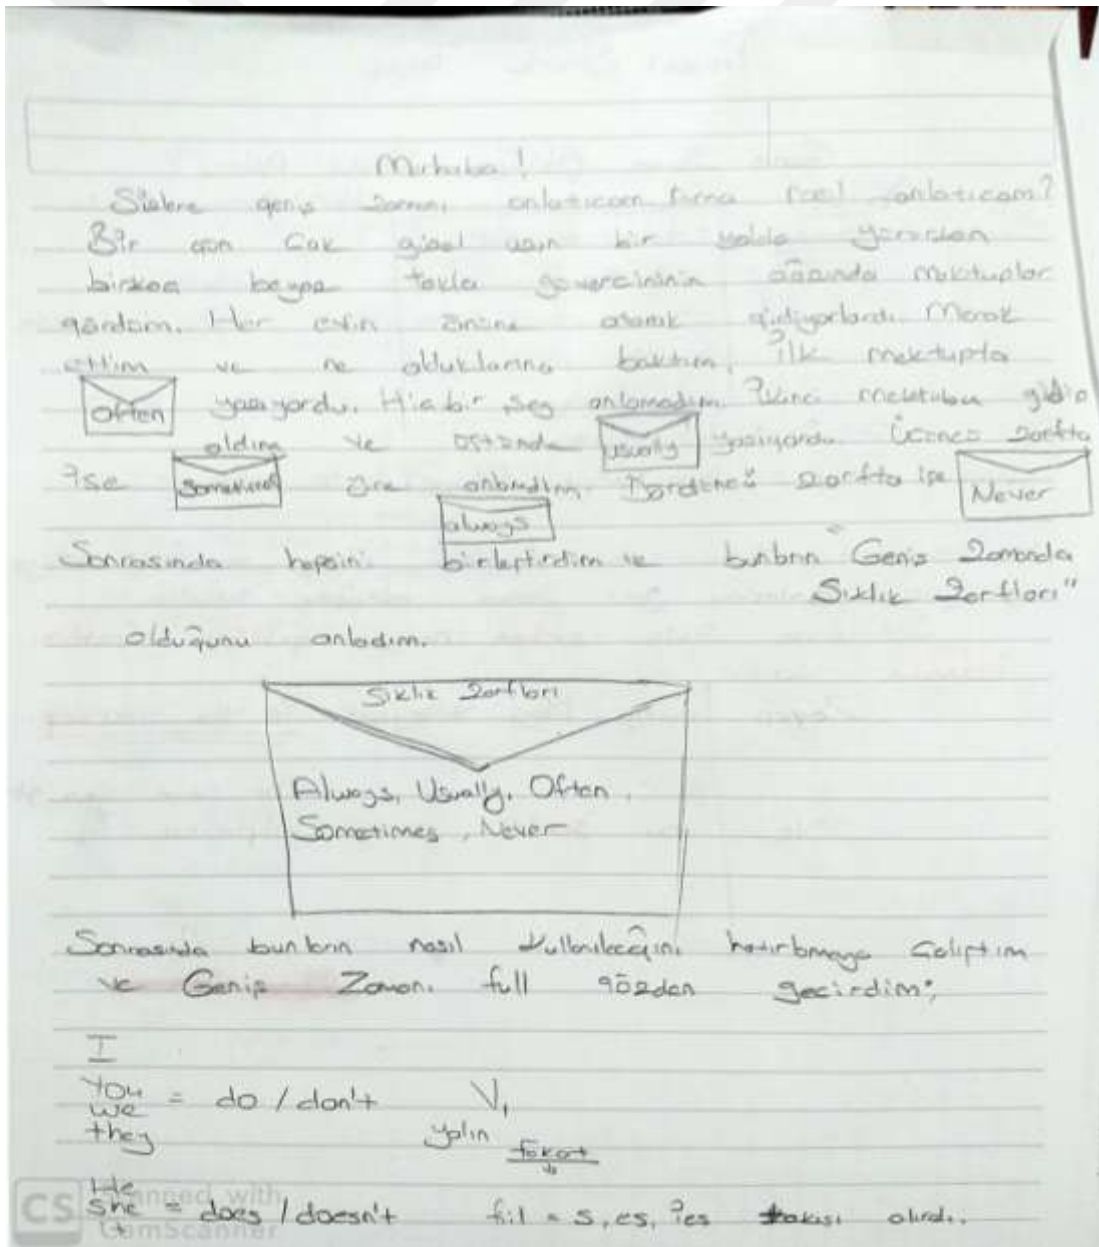 Merhaba!
Sizlere geniş zamanı anlatıcam Ama nasıl anlatıcam?
Bir gün Çok güzel uzun bir yolda yürürken
birkaç beyaz takla güvercininin ağzında mektuplar
gördüm. Her evin önüne atarak gidiyorlardı. Merak
ettim ve ne olduklarına baktım, İlk mektupta
often yazıyordu. Hiçbir şey anlamadım. İkinci mektubu gidip
aldım ve üstünde usually yazıyordu Üçüncü zarfta
ise sometimes anlamadım. Dördüncü zarfta ise Never
always
Sonrasında hepsini birleştirdim ve bunların "Geniş Zamanda
Sıklık Zarfları"
olduğunu anladım.
Sıklık Zarfları
Always, Usually, Often,
Sometimes, Never
Sonrasında bunların nasıl kullanılacağını hatırlamaya Çalıştım
ve Geniş Zamanı full gözden geçirdim;
I
You
we = do / don't V1
they yalın fakat
He
She = does / doesn't fiil = s, es, ies takısı alırdı.
CS Scanned with
CamScanner